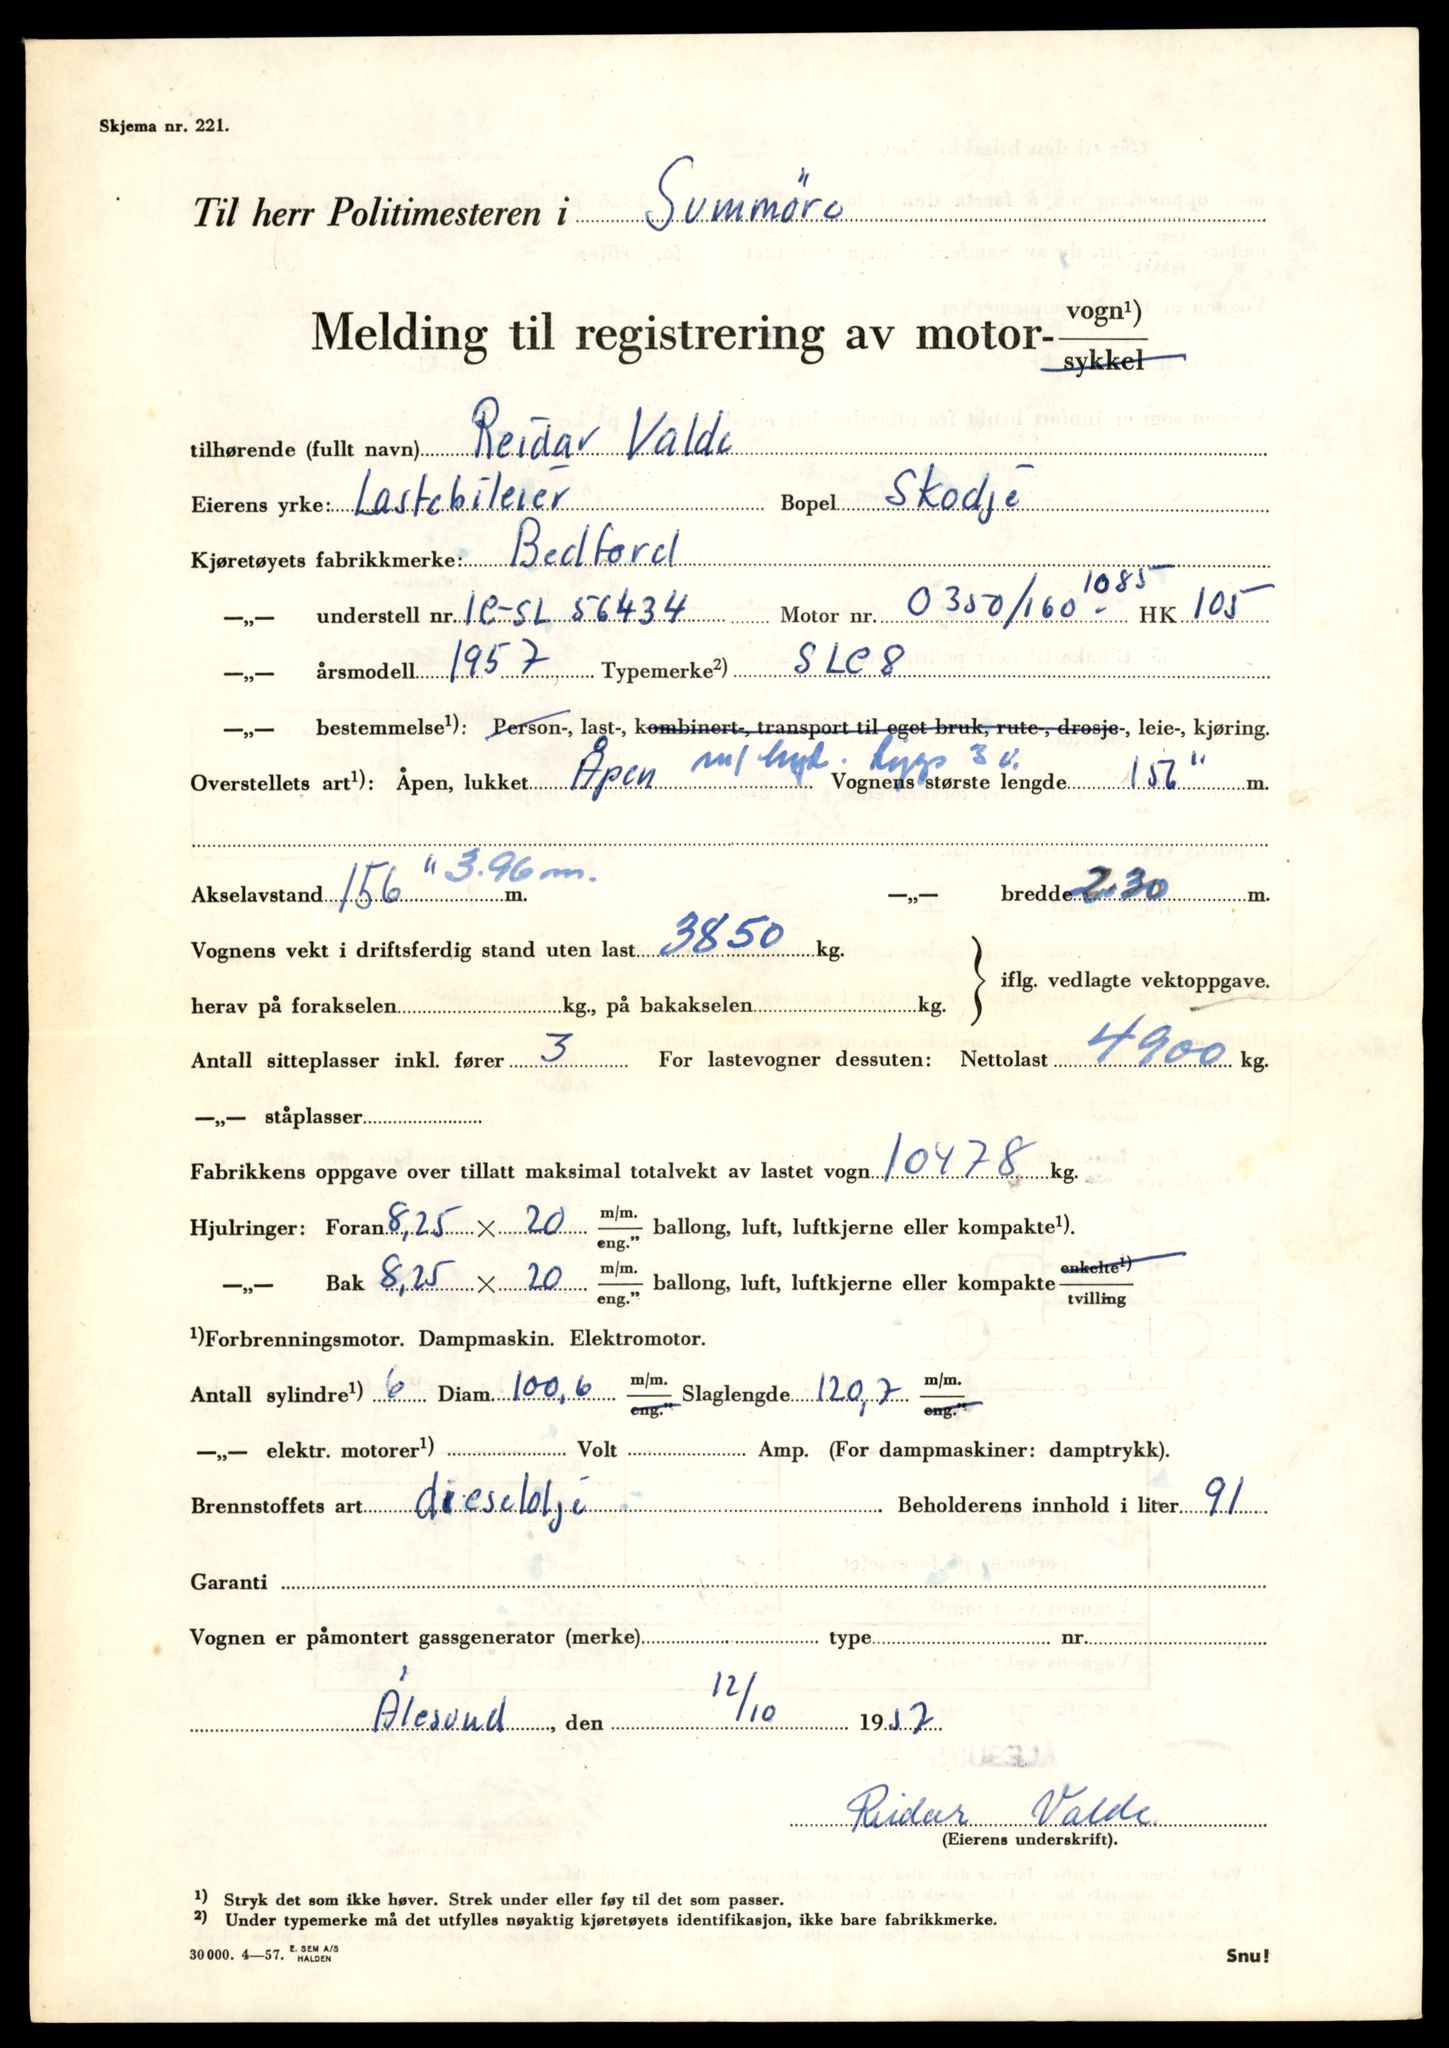 Skjema nr. 221.
Til herr Politimesteren i Sunnmöre
Melding til registrering av motor- vogn¹)
sykkel
tilhørende (fullt navn) Reidar Valde
Eierens yrke: Lastebileier Bopel Skodje
Kjøretøyets fabrikkmerke: Bedford
—„— understell nr. 1C-SL 56434 Motor nr. 0350/160-1085 HK 105
—„— årsmodell 1957 Typemerke²) SLC8
—„— bestemmelse¹): Person-, last-, kombinert-, transport til eget bruk, rute-, drosje-, leie-, kjøring.
Overstellets art¹): Åpen, lukket Åpen m/ hyd. 3 Vognens største lengde 156" m.
Akselavstand 156" 3.96 m. m. —„— bredde 2.30 m.
Vognens vekt i driftsferdig stand uten last 3850 kg.
iflg. vedlagte vektoppgave.
herav på forakselen kg., på bakakselen kg.
Antall sitteplasser inkl. fører 3 For lastevogner dessuten: Nettolast 4900 kg.
—„— ståplasser
Fabrikkens oppgave over tillatt maksimal totalvekt av lastet vogn 10478 kg.
Hjulringer: Foran 8,25 × 20 m/m. eng." ballong, luft, luftkjerne eller kompakte¹).
—„— Bak 8,25 × 20 m/m. eng." ballong, luft, luftkjerne eller kompakte enkelte¹) tvilling
¹)Forbrenningsmotor. Dampmaskin. Elektromotor.
Antall sylindre¹) 6 Diam. 100,6 m/m. eng." Slaglengde 120,7 m/m. eng."
—„— elektr. motorer¹) Volt Amp. (For dampmaskiner: damptrykk).
Brennstoffets art dieselolje Beholderens innhold i liter 91
Garanti
Vognen er påmontert gassgenerator (merke) type nr.
Ålesund, den 12/10 1957
Reidar Valde
(Eierens underskrift).
¹) Stryk det som ikke høver. Strek under eller føy til det som passer.
²) Under typemerke må det utfylles nøyaktig kjøretøyets identifikasjon, ikke bare fabrikkmerke.
30 000. 4—57. E. SEM A/S HALDEN Snu!